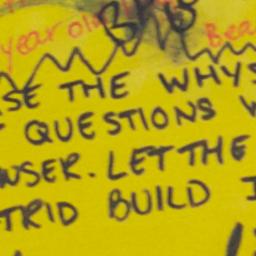 year old
Bea
SE THE WHYS
QUESTIONS
WSER. LET THE
TRID BUILD I